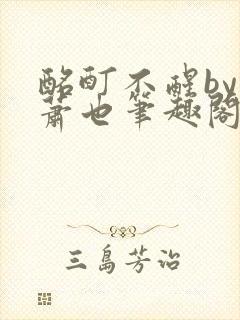 酩酊不醒by
萧也笔趣阁
三岛芳治